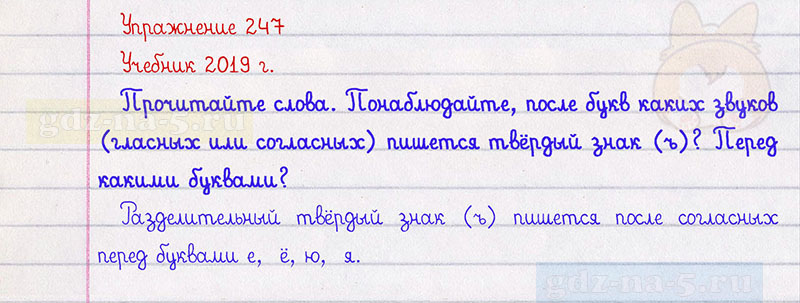 Упражнение 247
Учебник 2019 г.
Прочитайте слова. Понаблюдайте, после букв каких звуков
(гласных или согласных) пишется твёрдый знак (ъ)? Перед
какими буквами?
Разделительный твёрдый знак (ъ) пишется после согласных
перед буквами е, ё, ю, я.
gdz-na-5.ru
gdz-na-5.ru